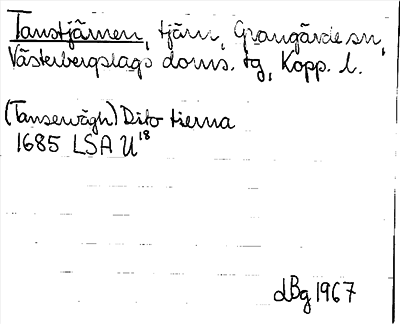 Tanstjärnen, tjärn, Grangärde sn,
Västerbergslags doms. tg, Kopp. l.
(Tansewägh) Dito tierna
1685 LSA U18
dBg 1967